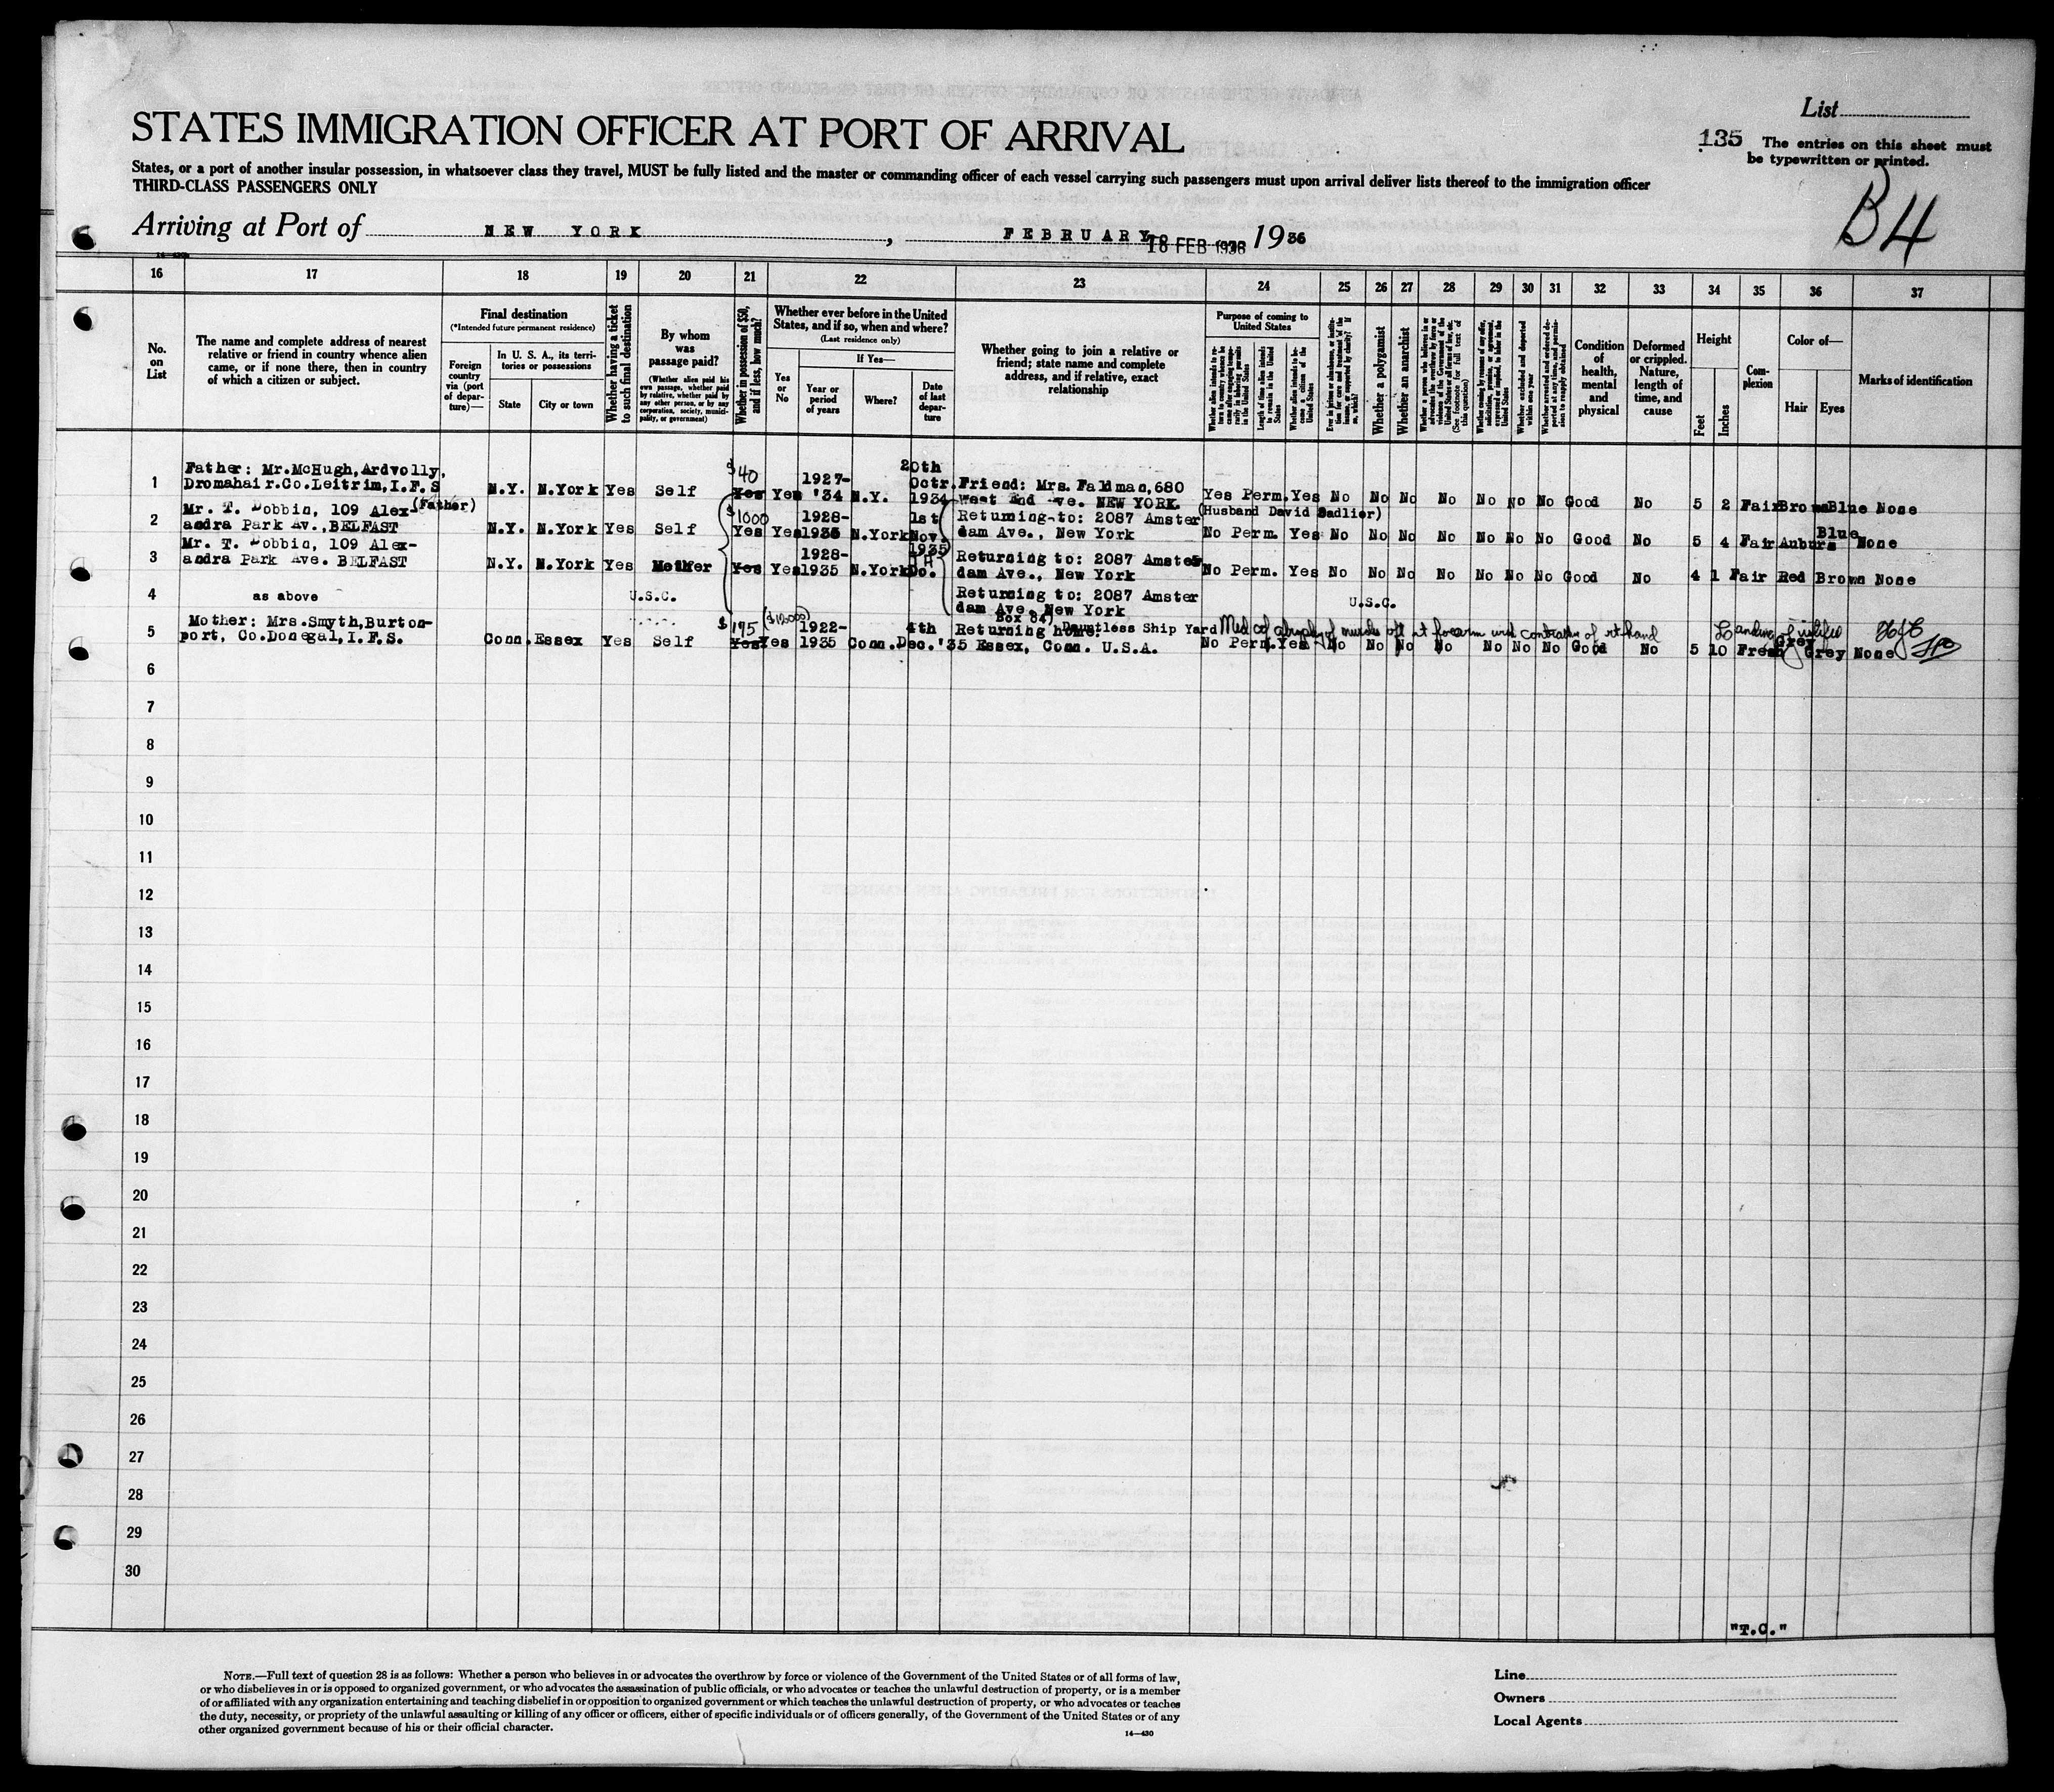 List
STATES IMMIGRATION OFFICER AT PORT OF ARRIVAL
135 The entries on this sheet must
be typewritten or printed.
States, or a port of another insular possession, in whatsoever class they travel, MUST be fully listed and the master or commanding officer of each vessel carrying such passengers must upon arrival deliver lists thereof to the immigration officer
THIRD-CLASS PASSENGERS ONLY
B4
Arriving at Port of NEW YORK, FEBRUARY 18 FEB 1936 1936
16 17 18 19 20 21 22 23 24 25 26 27 28 29 30 31 32 33 34 35 36 37
No. on List
The name and complete address of nearest relative or friend in country whence alien came, or if none there, then in country of which a citizen or subject.
Final destination
(*Intended future permanent residence)
Foreign country via (port of departure)—
In U. S. A., its territories or possessions
State
City or town
Whether having a ticket to such final destination
By whom was passage paid?
(Whether alien paid his own passage, whether paid by relative, whether paid by any other person, or by any corporation, society, municipality, or government)
Whether in possession of $50, and if less, how much?
Whether ever before in the United States, and if so, when and where?
(Last residence only)
Yes or No
If Yes—
Year or period of years
Where?
Date of last departure
Whether going to join a relative or friend; state name and complete address, and if relative, exact relationship
Purpose of coming to United States
Length of time alien intends to remain in the United States
Whether alien intends to become a citizen of the United States
Whether a polygamist
Whether an anarchist
Whether excluded and deported within one year
Condition of health, mental and physical
Deformed or crippled. Nature, length of time, and cause
Height
Feet
Inches
Complexion
Color of—
Hair
Eyes
Marks of identification
1 Father: Mr.McHugh,Ardvolly, Dromahair.Co.Leitrim,I.F.S N.Y. N.York Yes Self $40 Yes Yes 1927-'34 N.Y. 20th Octr. 1934 Friend: Mrs. Faldman,680 West End Ave. NEW YORK. Yes Perm. Yes No No No No No No No Good No 5 2 Fair Brown Blue None
2 Mr. T. Dobbin, 109 Alex- (Father) andra Park Av.,BELFAST N.Y. N.York Yes Self $1000 Yes Yes 1928-1935 N.York 1st Nov. 1935 Returning to: 2087 Amster dam Ave., New York (Husband David Sadlier) No Perm. Yes No No No No No No No Good No 5 4 Fair Auburn Blue None
3 Mr. T. Dobbin, 109 Alex- andra Park Ave. BELFAST N.Y. N.York Yes Mother Yes Yes 1928-1935 N.York Do. Returning to: 2087 Amster dam Ave., New York No Perm. Yes No No No No No No No Good No 4 1 Fair Red Brown None
4 as above U.S.C. Returning to: 2087 Amster dam Ave. New York U.S.C.
5 Mother: Mrs.Smyth,Burton- port, Co.Donegal,I.F.S. Conn. Essex Yes Self $195 ($10000) Yes Yes 1922-1935 Conn. 4th Dec.'35 Returning home: Box 84, Dauntless Ship Yard Essex, Conn. U.S.A. No Perm. Yes No No No No No No No Good No 5 10 Fresh Grey Grey None
6
7
8
9
10
11
12
13
14
15
16
17
18
19
20
21
22
23
24
25
26
27
28
29
30
"T.C."
NOTE.—Full text of question 28 is as follows: Whether a person who believes in or advocates the overthrow by force or violence of the Government of the United States or of all forms of law,
or who disbelieves in or is opposed to organized government, or who advocates the assassination of public officials, or who advocates or teaches the unlawful destruction of property, or is a member
of or affiliated with any organization entertaining and teaching disbelief in or opposition to organized government or which teaches the unlawful destruction of property, or who advocates or teaches
the duty, necessity, or propriety of the unlawful assaulting or killing of any officer or officers, either of specific individuals or of officers generally, of the Government of the United States or of any
other organized government because of his or their official character.
14—430
Line
Owners
Local Agents